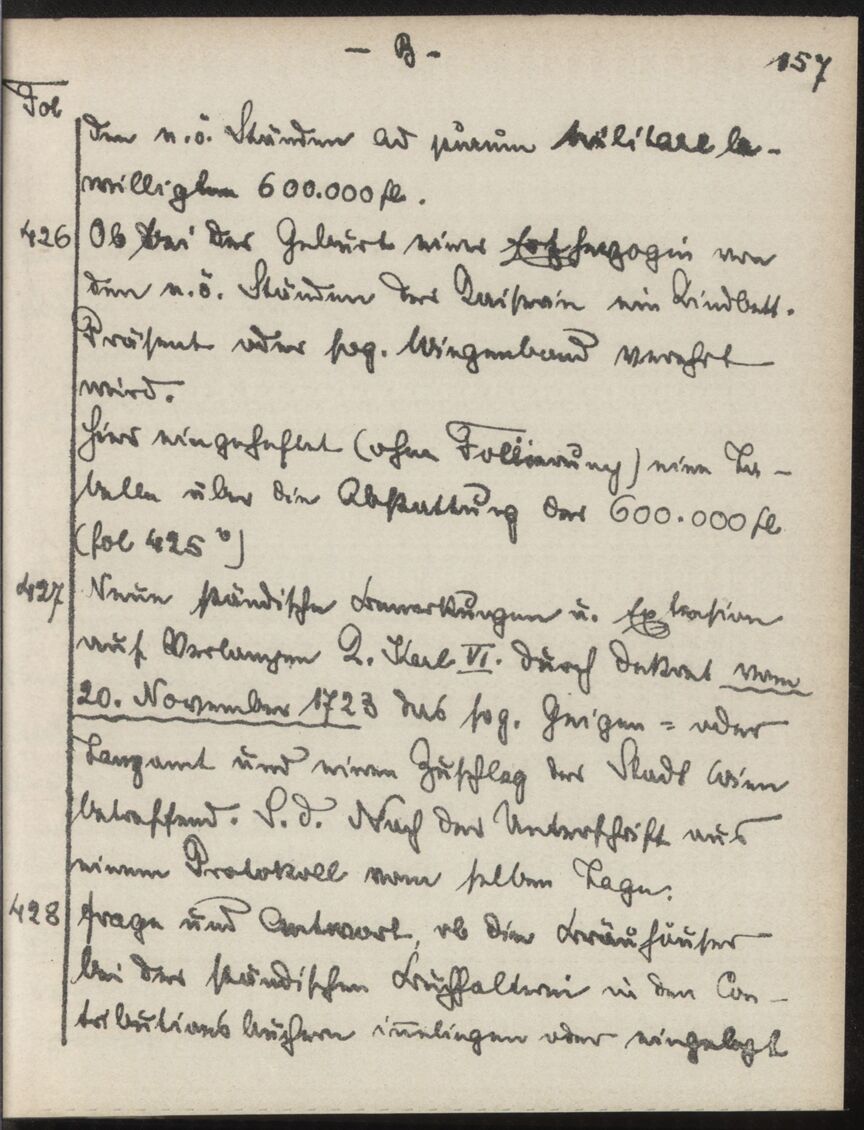 - B -
157
Fol
den n.ö. Ständen ad purum militare be-
willigten 600.000 fl.
426 Ob bei der Geburt einer Erzherzogin von
den n.ö. Ständen der Kaiserin ein Kindbett-
Präsent oder sog. Wiegenband verehrt
wird.
Hier eingeheftet (ohne Foliierung) eine Ta-
belle über die Abstattung der 600.000 fl
(fol 425 v)
427 Neue ständische Bemerkungen u.
auf Verlangen K. Karl VI. durch Dekret vom
20. November 1723 das sog. Geigen= oder
Tanzamt und einen Zuschlag der Stadt Wien
betreffend. S.d. Nach der Unterschrift aus
einem Protokoll vom selben Tage.
428 Frage und Antwort, ob die Bräuhäuser
bei der ständischen Buchhalterei in den Con-
tributionsbüchern inneliegen oder eingelegt